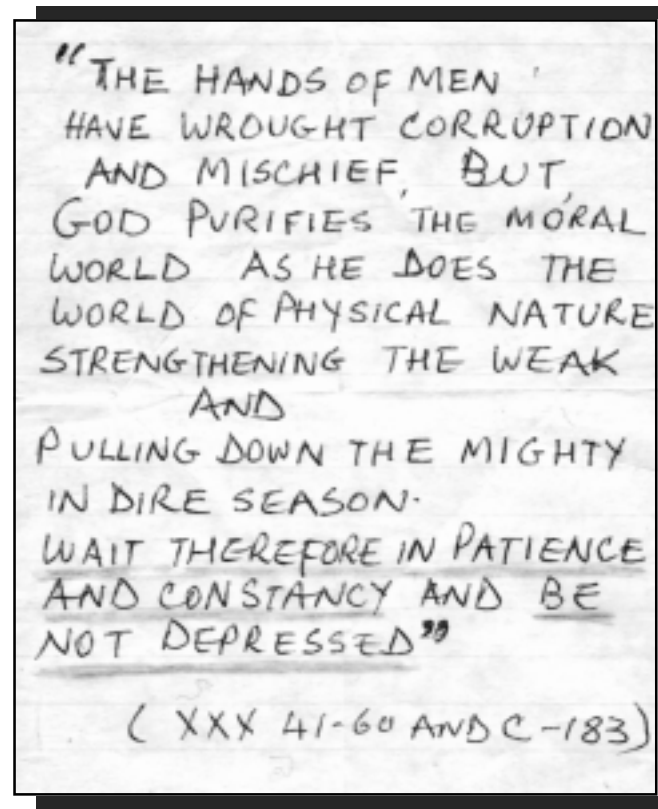 "THE HANDS OF MEN
HAVE WROUGHT CORRUPTION
AND MISCHIEF, BUT,
GOD PURIFIES THE MORAL
WORLD AS HE DOES THE
WORLD OF PHYSICAL NATURE
STRENGTHENING THE WEAK
AND
PULLING DOWN THE MIGHTY
IN DIRE SEASON.
WAIT THEREFORE IN PATIENCE
AND CONSTANCY AND BE
NOT DEPRESSED"
(XXX 41-60 AND C-183)